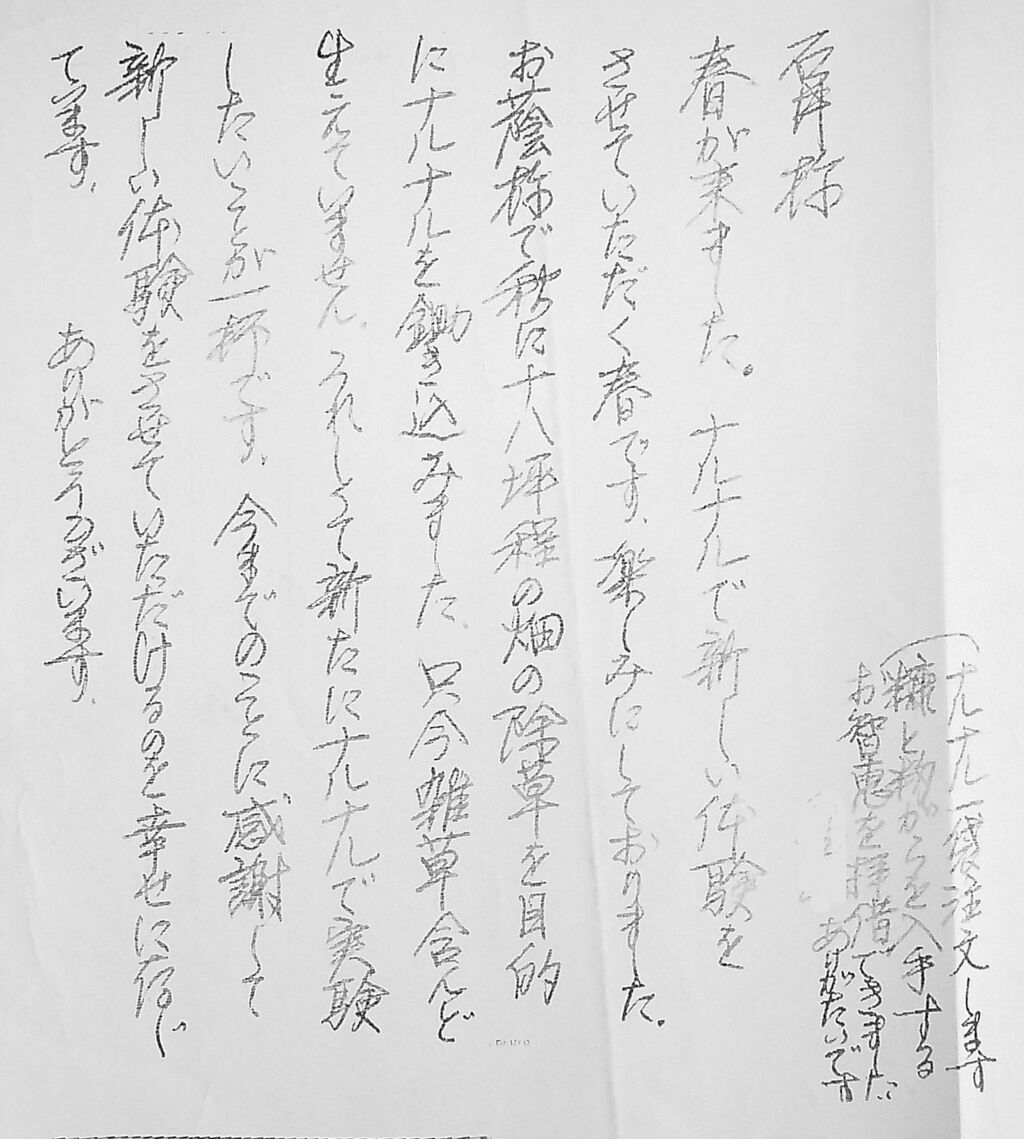 石井様
春が来ました。ナルナルで新しい体験を
させていただく春です、楽しみにしておりました。
お蔭様で秋に十八坪程の畑の除草を目的
にナルナルを鋤き込みました、只今雑草含んど
生えていません、うれしくて新たにナルナルで実験
したいことが一杯です、今までのことに感謝して
新しい体験をさせていただけるのを幸せに存じ
てます、
ありがとうございます、
ナルナル一袋注文します
糠と籾がらを入手する
お智恵を拝借できました
ありがたいです